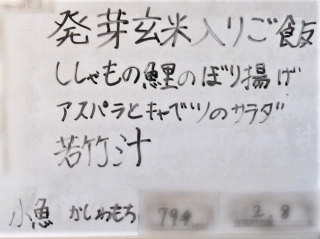 発芽玄米入りご飯
ししゃもの鯉のぼり揚げ
アスパラとキャベツのサラダ
若竹汁
小魚 かしわもち 794 2.8